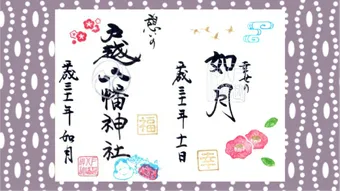 幸せの
如月
歳三十一年 十一日
戸越八幡神社
歳三十一年 如月
福